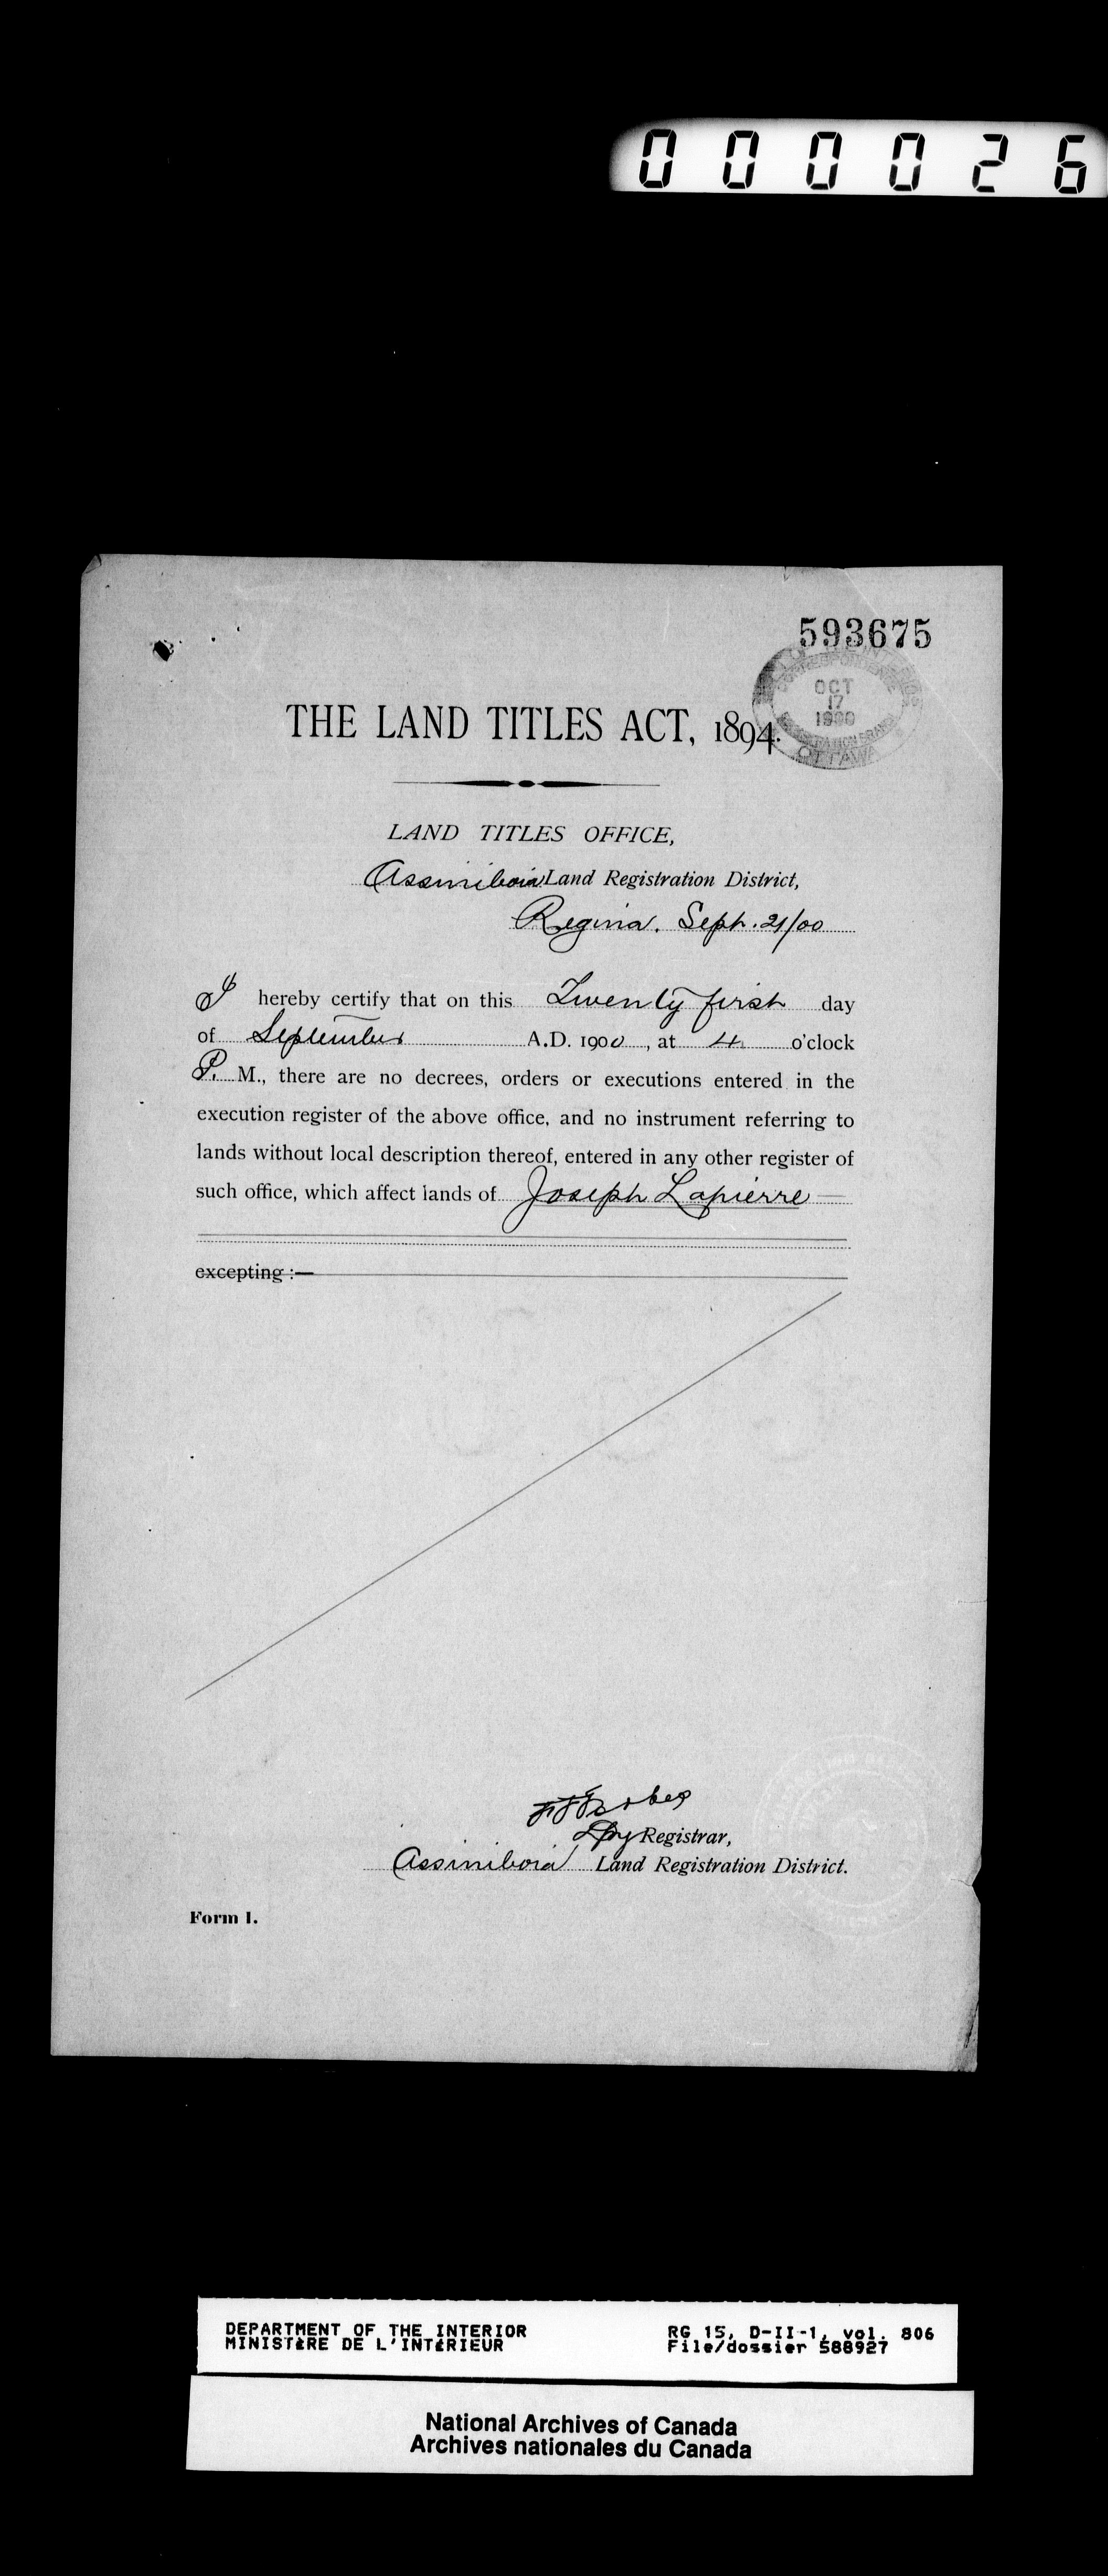 000026
593675
OCT
17
1900
OTTAWA
THE LAND TITLES ACT, 1894.
LAND TITLES OFFICE,
Assiniboia Land Registration District,
Regina. Sept. 21/00
I hereby certify that on this Twenty first day
of September A.D. 1900, at 4 o'clock
P. M., there are no decrees, orders or executions entered in the
execution register of the above office, and no instrument referring to
lands without local description thereof, entered in any other register of
such office, which affect lands of Joseph Lapierre
excepting :—
Forbes
Dpy Registrar,
Assiniboia Land Registration District.
Form I.
DEPARTMENT OF THE INTERIOR
MINISTÈRE DE L'INTÉRIEUR
RG 15, D-II-1, vol. 806
File/dossier 588927
National Archives of Canada
Archives nationales du Canada